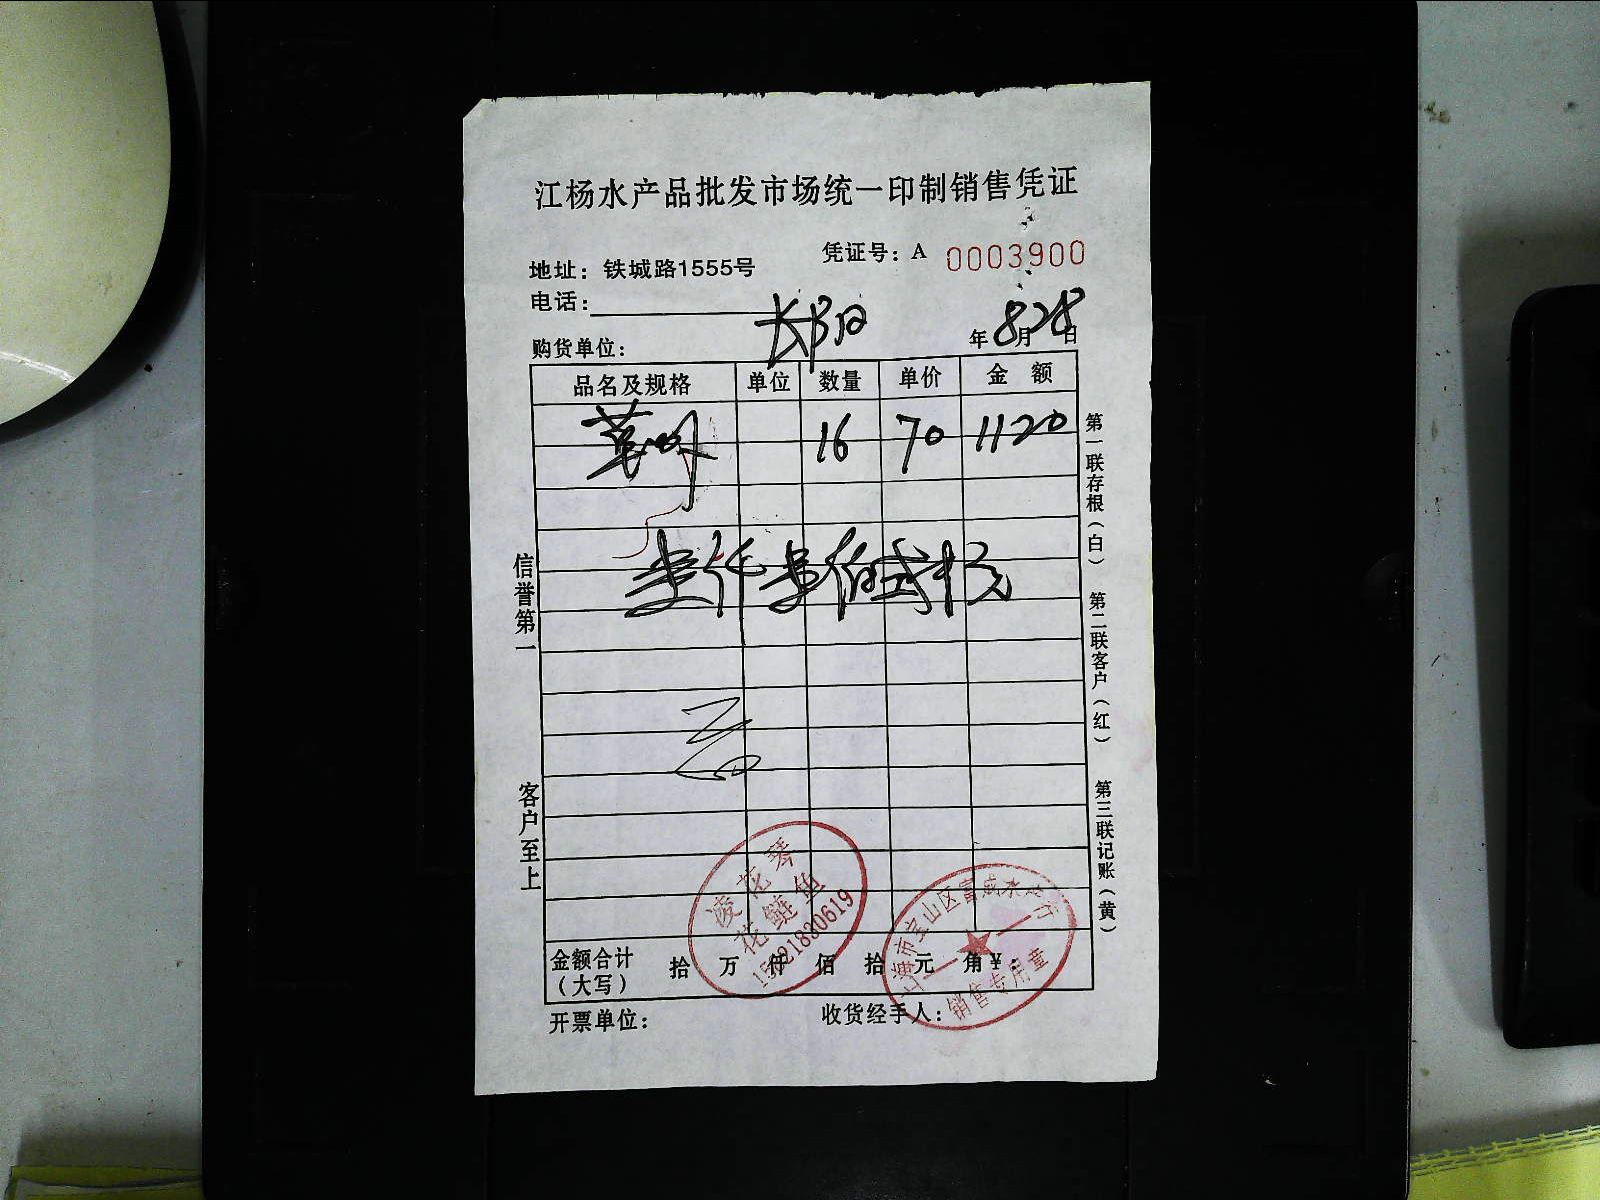 江杨水产品批发市场统一印制销售凭证
凭证号：A 0003900
地址：铁城路1555号
电话：
购货单位：
年 8月28日
品名及规格 单位 数量 单价 金额
16 70 1120
壹仟壹佰贰拾元
信誉第一
客户至上
第一联存根（白）
第二联客户（红）
第三联记账（黄）
凌花琴
花鲢鱼
15821830619
上海市宝山区富成水产行
销售专用章
金额合计（大写） 拾 万 仟 佰 拾 元 角 ¥：
开票单位：
收货经手人：